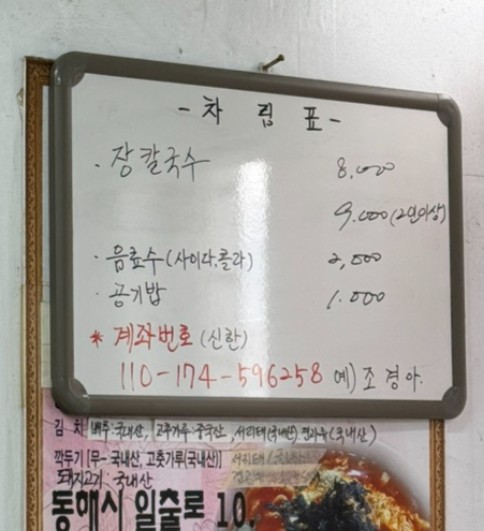 -차림표-
· 장칼국수 8,000
9,000 (2인이상)
· 음료수(사이다,콜라) 2,000
· 공기밥 1,000
* 계좌번호 (신한)
110-174-596258 예) 조경아.
김치 배추:국내산, 고추가루:중국산, 서리태(국내산)
깍두기 [무-국내산, 고춧가루(국내산)] 서리태
돼지고기:국내산
동해시 일출로 10.